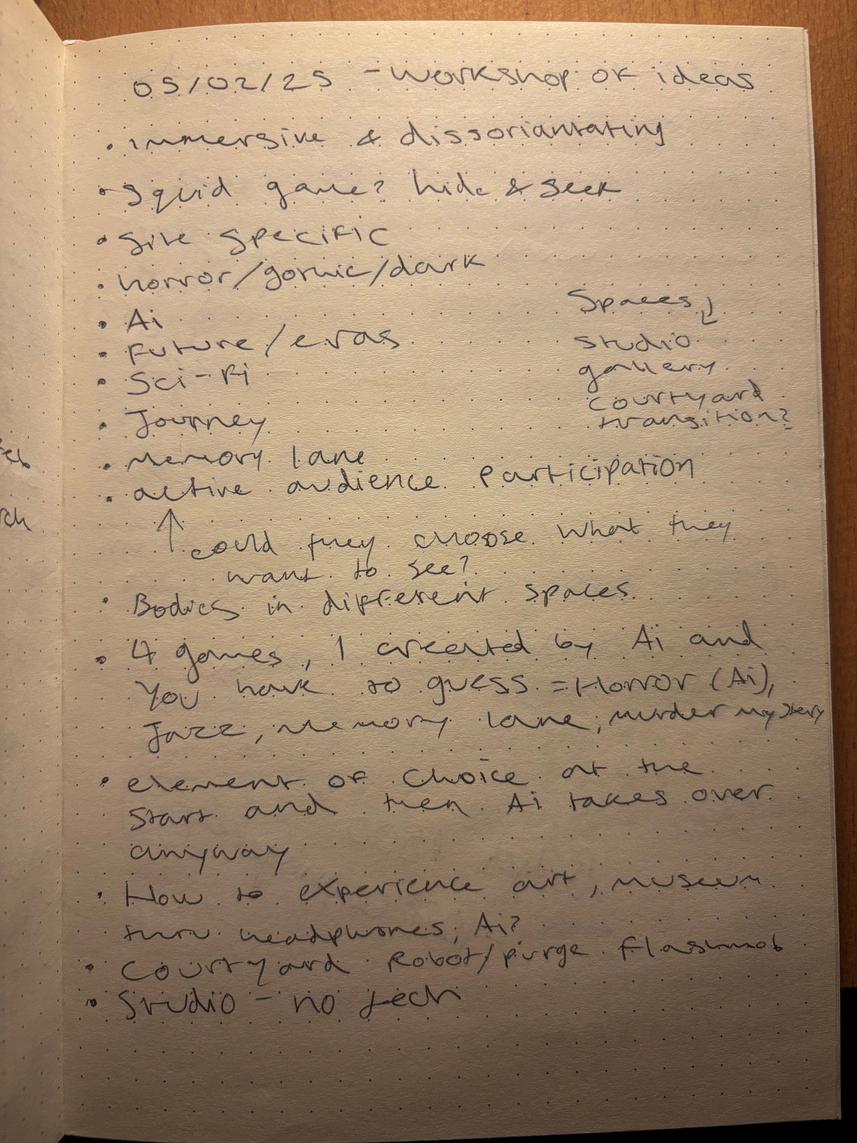 05/02/25 - Workshop of ideas
• immersive & dissoriantating
• Squid game? hide & seek
• Site specific
• horror/gothic/dark
• Ai
• Future/eras
• Sci-Fi
• Journey
• Memory lane
• active audience participation
↑ could they choose what they
want to see?
Spaces ↓
Studio
gallery
courtyard
transition?
• Bodies in different spaces
• 4 games, 1 created by Ai and
you have to guess = Horror (Ai),
Jazz, memory lane, murder mystery
• element of choice at the
start and then Ai takes over
anyway
• How to experience art, museum
headphones, Ai?
• Courtyard Robot/purge flashmob
• Studio - no tech